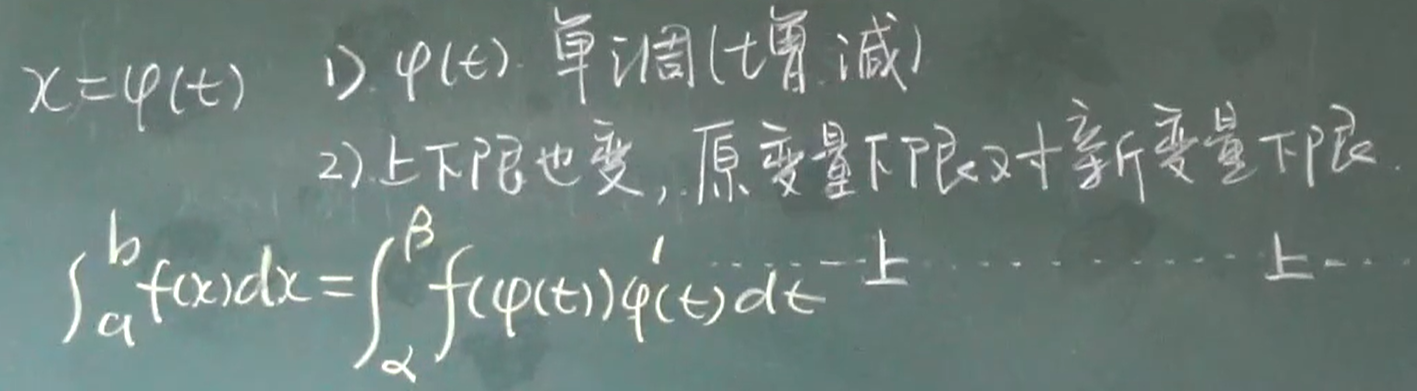 x=φ(t) 1).φ(t).单调(增.减)
2).上下限也变,.原变量下限对新变量下限.
∫_a^b f(x)dx=∫_α^β f(φ(t))φ'(t)dt ------上·········上---